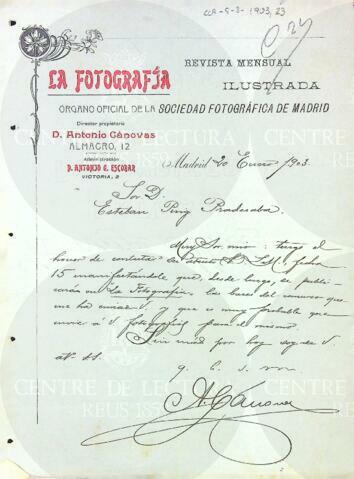 CLR-5-3-1903,23
REVISTA MENSUAL
ILUSTRADA
LA FOTOGRAFÍA
ÓRGANO OFICIAL DE LA SOCIEDAD FOTOGRÁFICA DE MADRID
Director propietario
D. Antonio Cánovas
ALMAGRO, 12
Administración
D. ANTONIO G. ESCOBAR
VICTORIA, 2
Madrid 20 Enero 1903.
Sor. D.
Esteban Puig
Muy Sr. mio: tengo el
honor de contestar su atenta fecha
15 manifestándole que, desde luego, se publi-
carán en La Fotografía, las bases del concurso que
me ha enviado V. y que es muy probable que
envie á V. fotografías para el mismo.
Sin mas por hoy soy de V.
q. b. s. m.
A. Cánovas
CENTRE DE LECTURA
REUS 1859